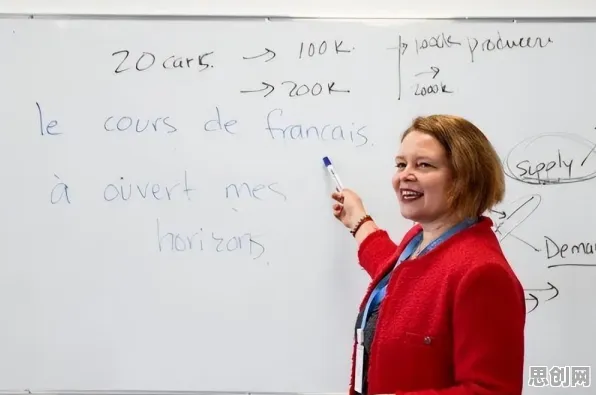 20 cars. → 100k.
→ 200k
1000k producers
→
2000k
le cours de francais.
à ouvert mes
horizons.
supply
Dema
思创网